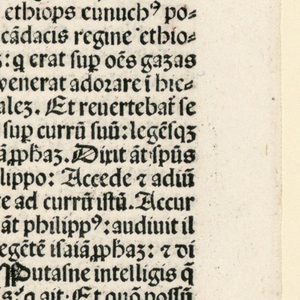 ethiops eunuchꝰ po-
cādacis regine ethio-
ꝫ: q̄ erat suꝑ oēs gazas
venerat adorare ī hie-
aleꝫ. Et reuertebat᷑ se
suꝑ currū suū: legēsqꝫ
iā ꝓphaꝫ. Dixit āt sp̄us
ilippo: Accede ⁊ adiū
e ad currū istū. Accur
āt philippꝰ: audiuit il
egētē isaiā ꝓphaꝫ: ⁊ di
Putasne intelligis q̄
s: q̄ ait. Et quō possū